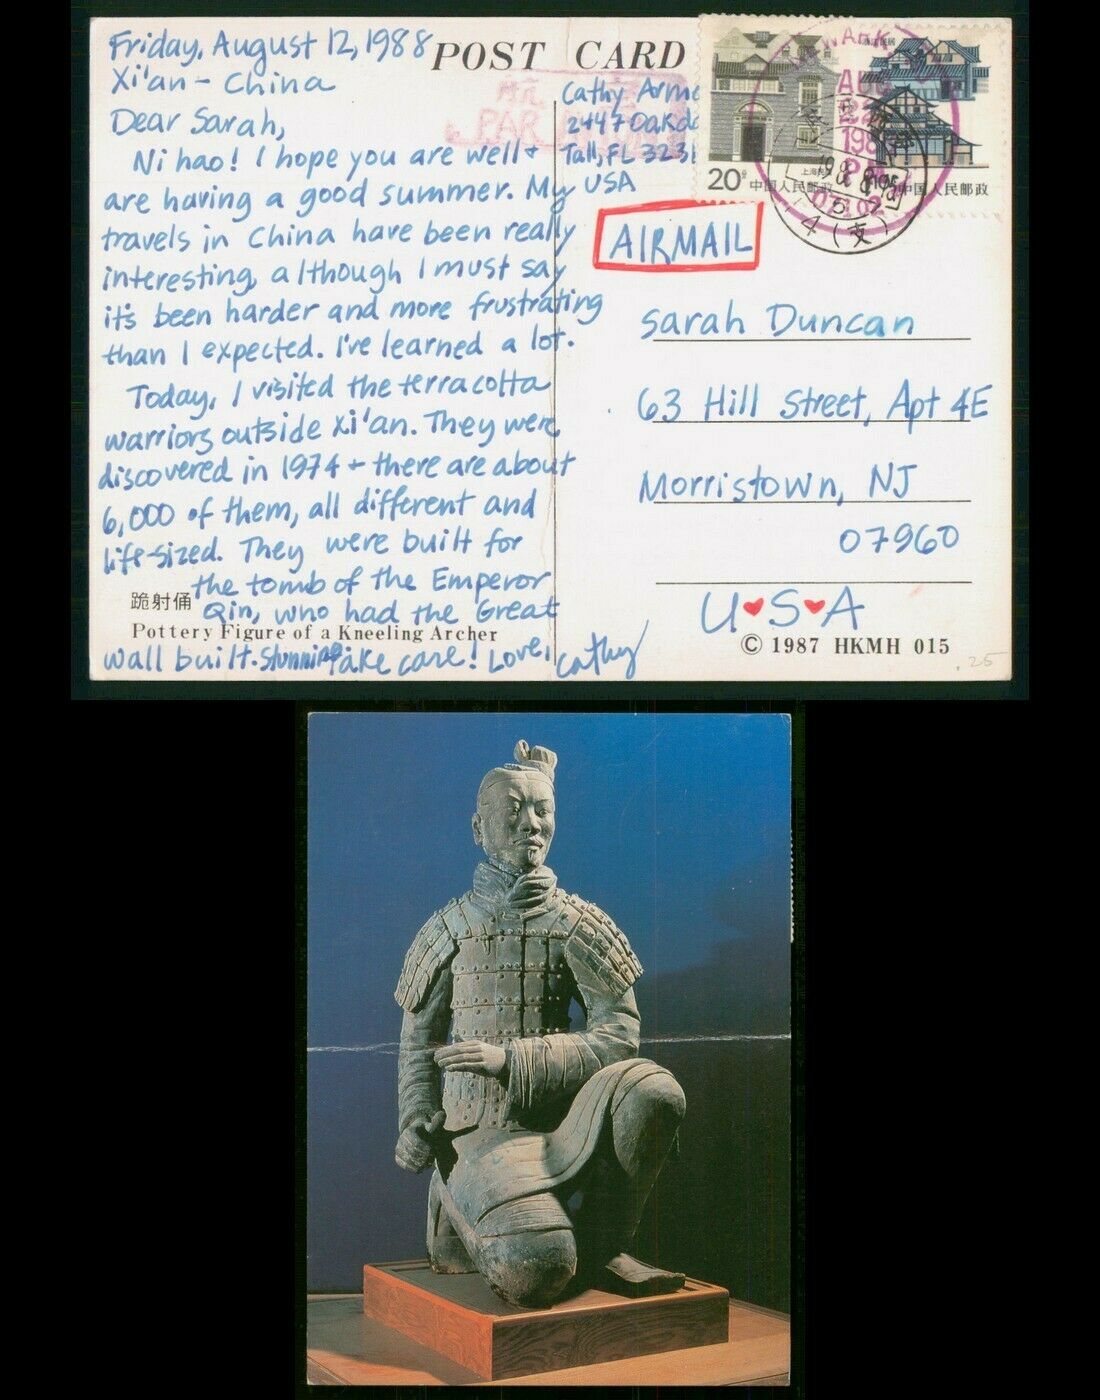 Friday, August 12, 1988
Xi'an - China
Dear Sarah,
Ni hao! I hope you are well +
are having a good summer. My
travels in China have been really
interesting, although I must say
it's been harder and more frustrating
than I expected. I've learned a lot.
Today, I visited the terracotta
warriors outside Xi'an. They were
discovered in 1974 + there are about
6,000 of them, all different and
life-sized. They were built for
the tomb of the Emperor
Qin, who had the Great
wall built. Stunning. Take care! Love, Cathy
跪射俑
Pottery Figure of a Kneeling Archer
POST CARD
航
PAR AVION
Cathy
2447
Tall, FL
USA
AIRMAIL
20分
中国人民邮政
上海民居
中国人民邮政
NEWARK
AUG
22
198
PM
07102
4(支)
Sarah Duncan
63 Hill Street, Apt 4E
Morristown, NJ
07960
U♥S♥A
© 1987 HKMH 015
.25